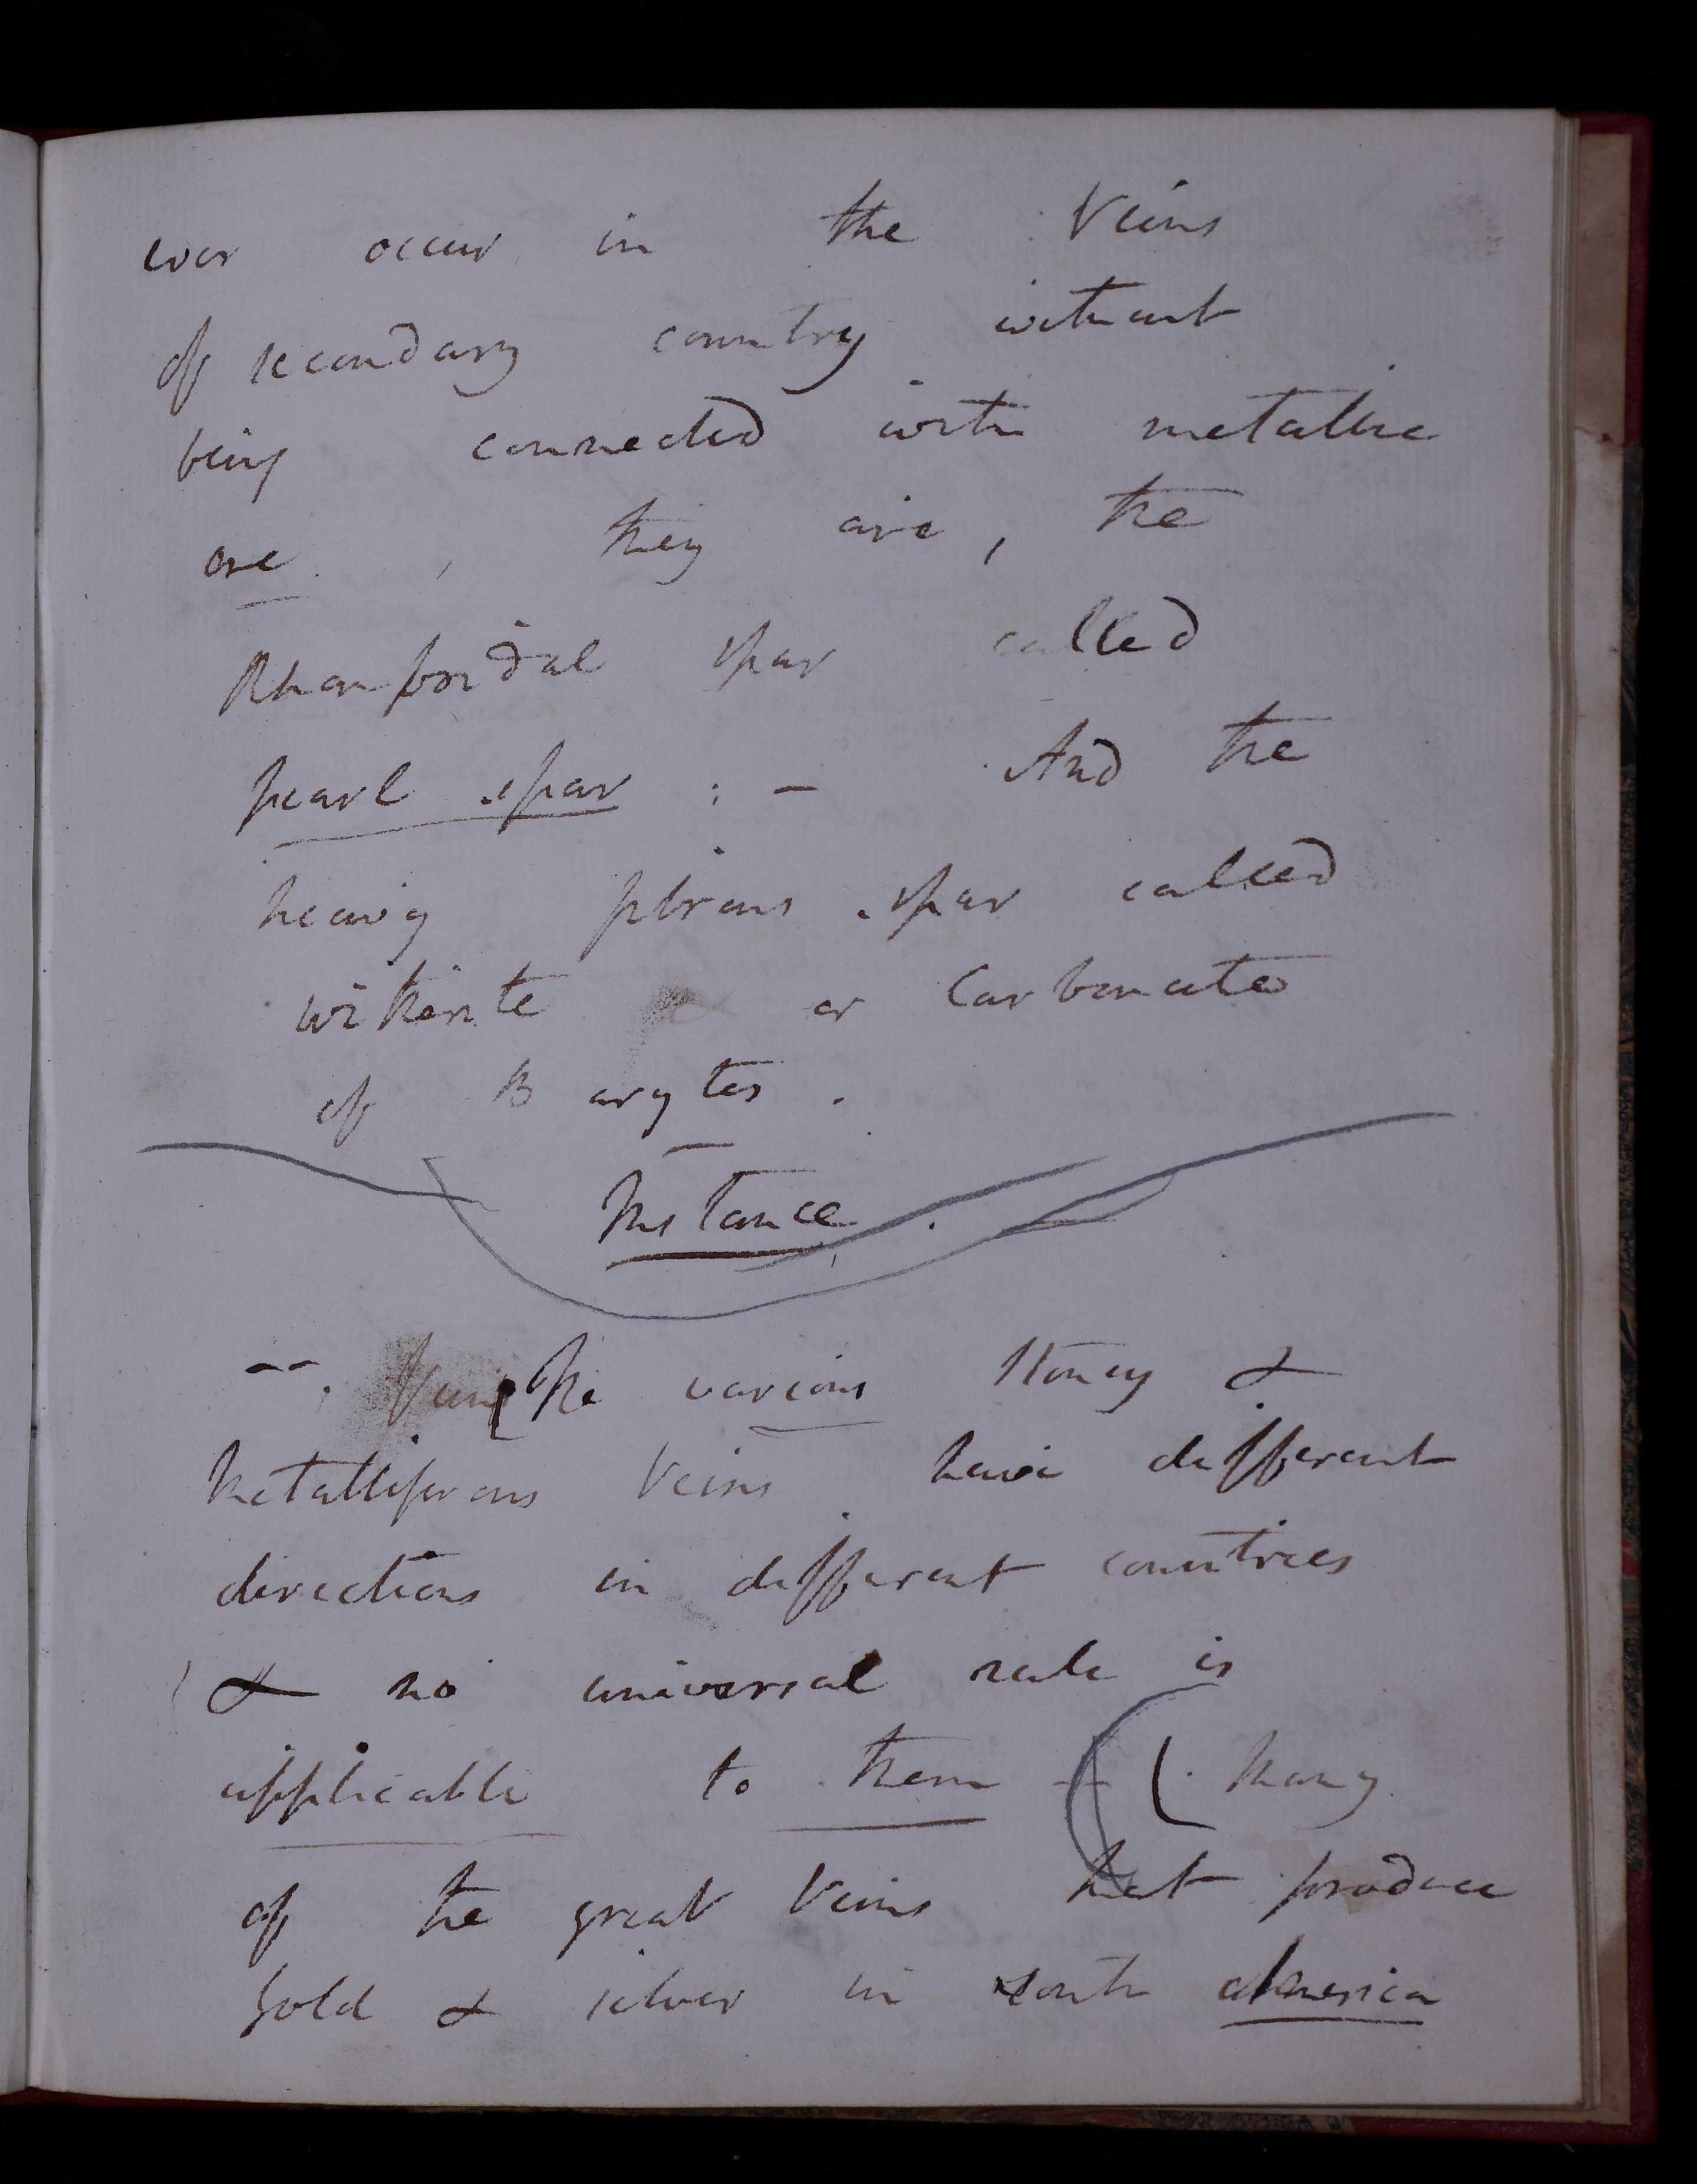 ever occur in the Veins
of secondary country without
being connected with metallic
ore , they are , the
Rhomboidal spar called
pearl spar : — And the
heavy fibrous spar called
witherite or Carbonate
of Barytes .
Instance .
— . The various Stoney &
Metalliferous Veins have different
directions in different countries
& no universal rule is
applicable to them ( Many
of the great Veins that produce
Gold & silver in South America